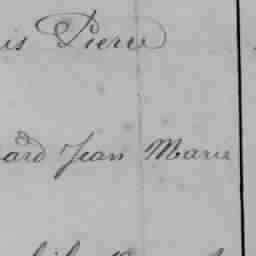 is Pierre
ard Jean Marie